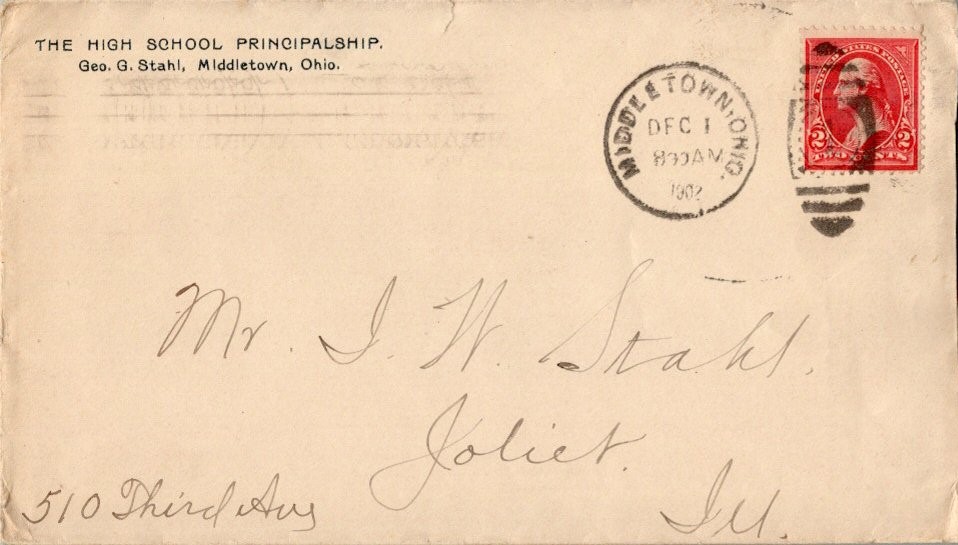 THE HIGH SCHOOL PRINCIPALSHIP.
Geo. G. Stahl, Middletown, Ohio.
MIDDLETOWN, OHIO.
DEC 1
8 AM
1902
UNITED STATES POSTAGE
2 2
TWO CENTS
Mr. I. W. Stahl.
Joliet.
Ill.
510 Third Ave